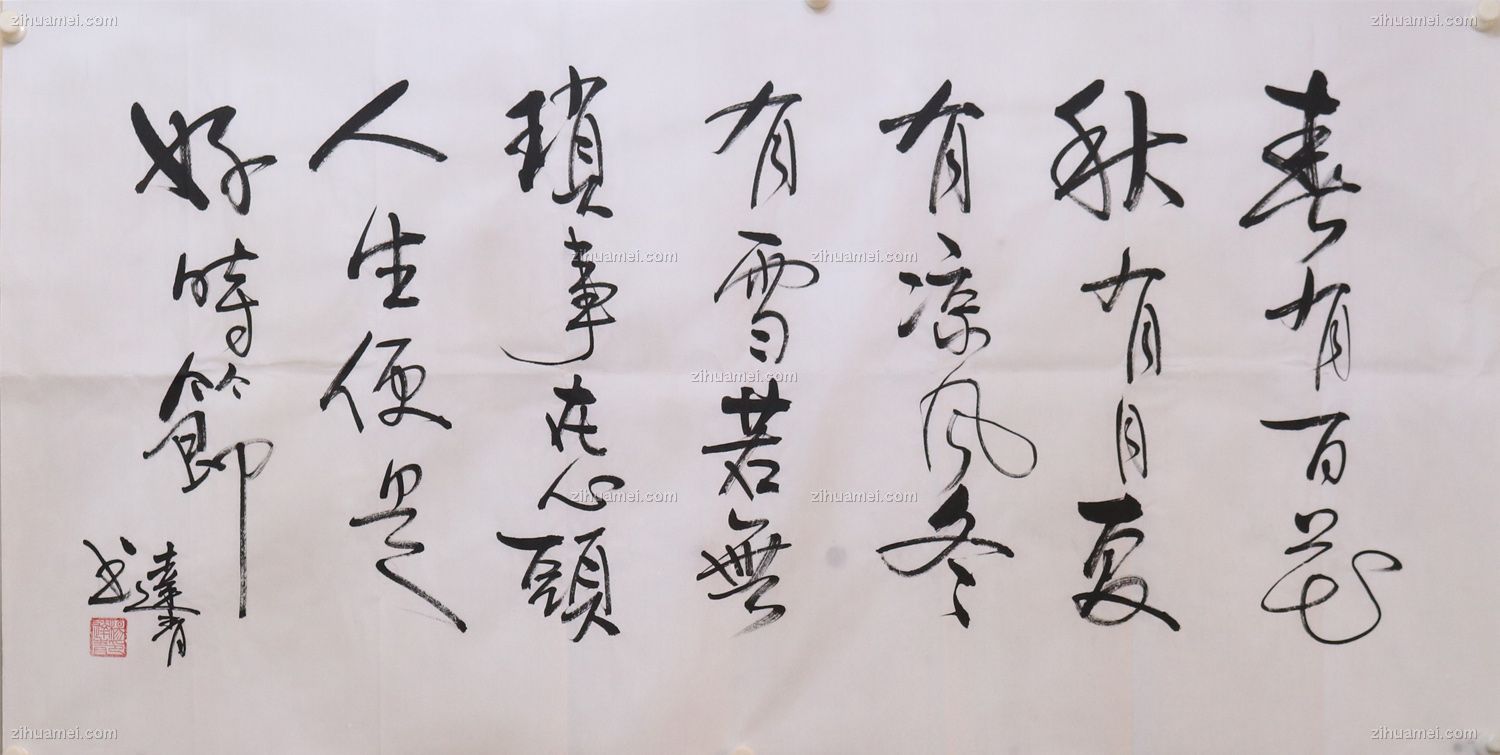 春有百花
秋有月夏
有凉风冬
有雪若無
瑣事在心頭
人生便是
好時節
達青
书
zihuamei.com
zihuamei.com
zihuamei.com
zihuamei.com
zihuamei.com
zihuamei.com
zihuamei.com
zihuamei.com
zihuamei.com